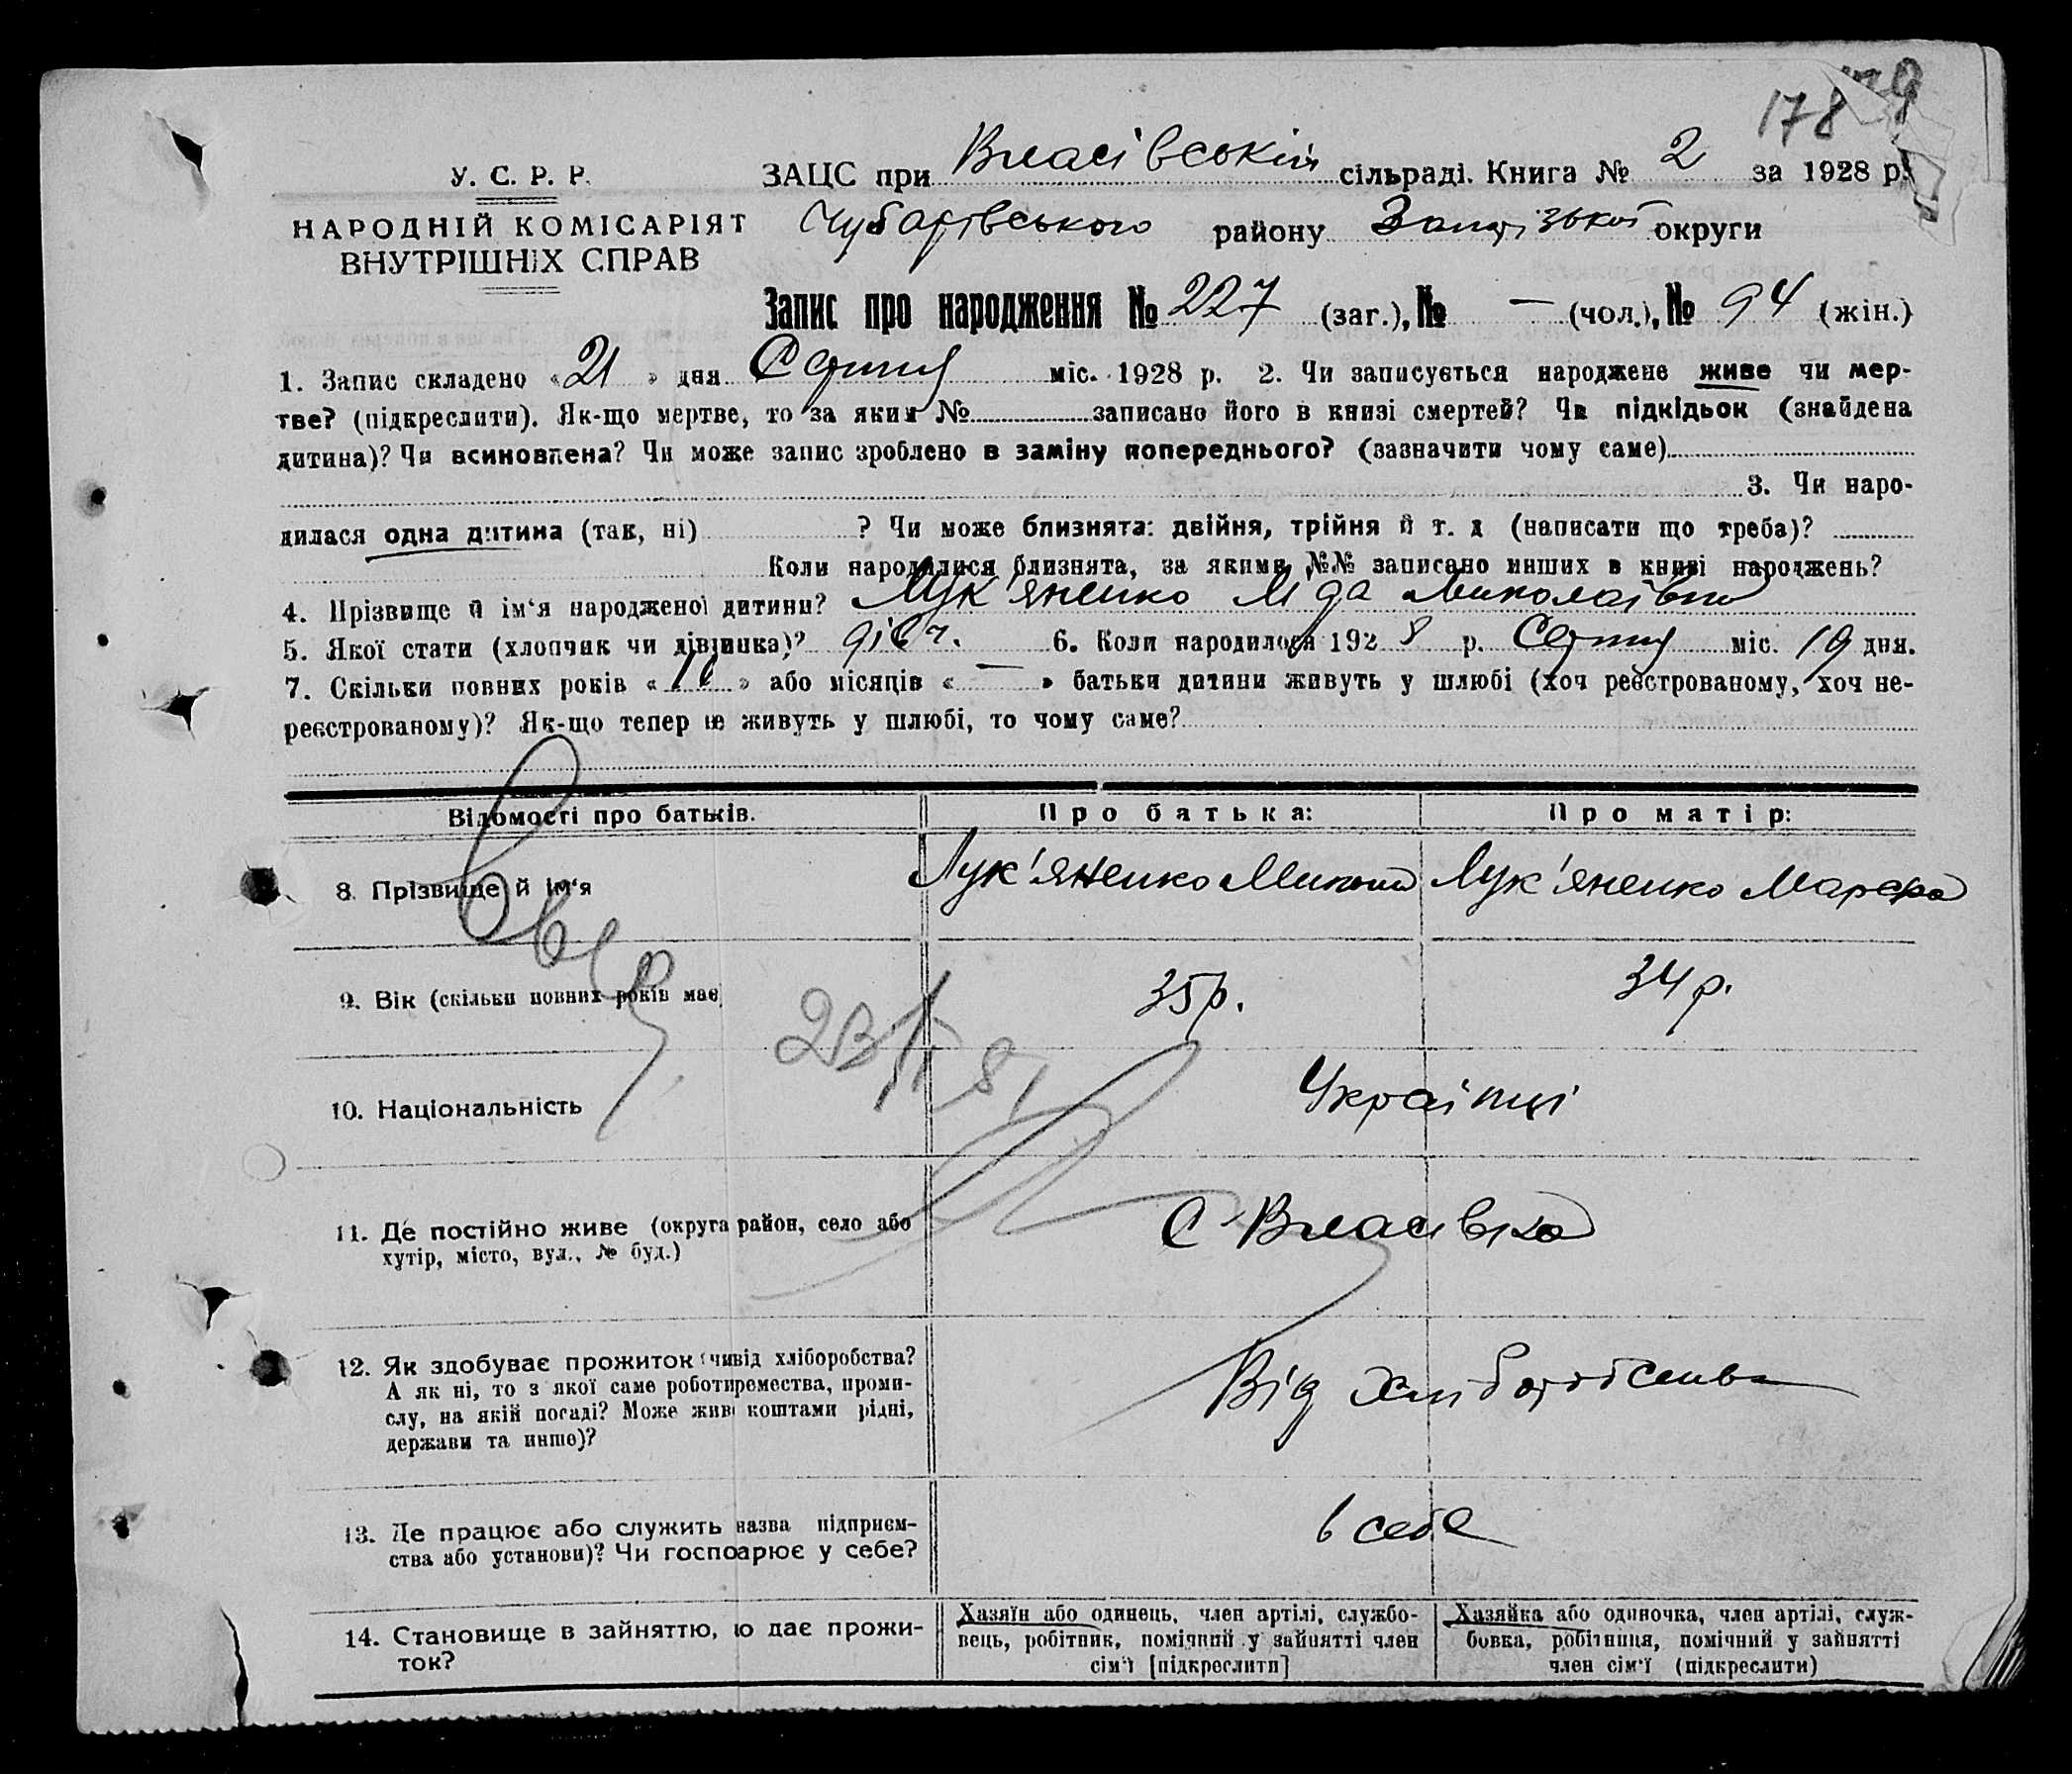 178
У. С. Р. Р.
НАРОДНІЙ КОМІСАРІЯТ
ВНУТРІШНІХ СПРАВ
ЗАЦС при Власівській сільраді. Книга № 2 за 1928 р.
Чубарівського району Запорізької округи
Запис про народження № 227 (заг.), № — (чол.), № 94 (жін.)
1. Запис складено «21» дня Серпня міс. 1928 р. 2. Чи записується народжене живе чи мер-
тве? (підкреслити). Як-що мертве, то за яким № записано його в книзі смертей? Чи підкідьок (знайдена
дитина)? Чи всиновлена? Чи може запис зроблено в заміну попереднього? (зазначити чому саме)
3. Чи наро-
дилася одна дитина (так, ні) ? Чи може близнята: двійня, трійня й т. д (написати що треба)?
Коли народилися близнята, за якими №№ записано инших в книзі народжень?
4. Прізвище й ім‘я народженої дитини? Лук'яненко Ліда Миколаївна
5. Якої стати (хлопчик чи дівчинка)? дівч. 6. Коли народилося 1928 р. Серпня міс. 19 дня.
7. Скільки повних років « » або місяців «—» батьки дитини живуть у шлюбі (хоч реєстрованому, хоч не-
реєстрованому)? Як-що тепер не живуть у шлюбі, то чому саме?
Відомості про батьків.
Про батька:
Про матір:
8. Прізвище й ім‘я
Лук'яненко Микола
Лук'яненко Марфа
9. Вік (скільки повних років має
35 р.
34 р.
10. Національність
Українці
11. Де постійно живе (округа район, село або
хутір, місто, вул., № буд.)
С Власівка
12. Як здобуває прожиток (чи від хліборобства?
А як ні, то з якої саме роботи ремества, проми-
слу, на якій посаді? Може живе коштами рідні,
держави та инше)?
Від хліборобства
13. Де працює або служить назва підприєм-
ства або установи)? Чи госпоарює у себе?
в себе
14. Становище в зайняттю, ю дає прожи-
ток?
Хазяїн або одинець, член артілі, службо-
вець, робітник, помічний у зайнятті член
сім‘ї [підкреслити]
Хазяйка або одиночка, член артілі, служ-
бовка, робітниця, помічний у зайнятті
член сім‘ї (підкреслити)